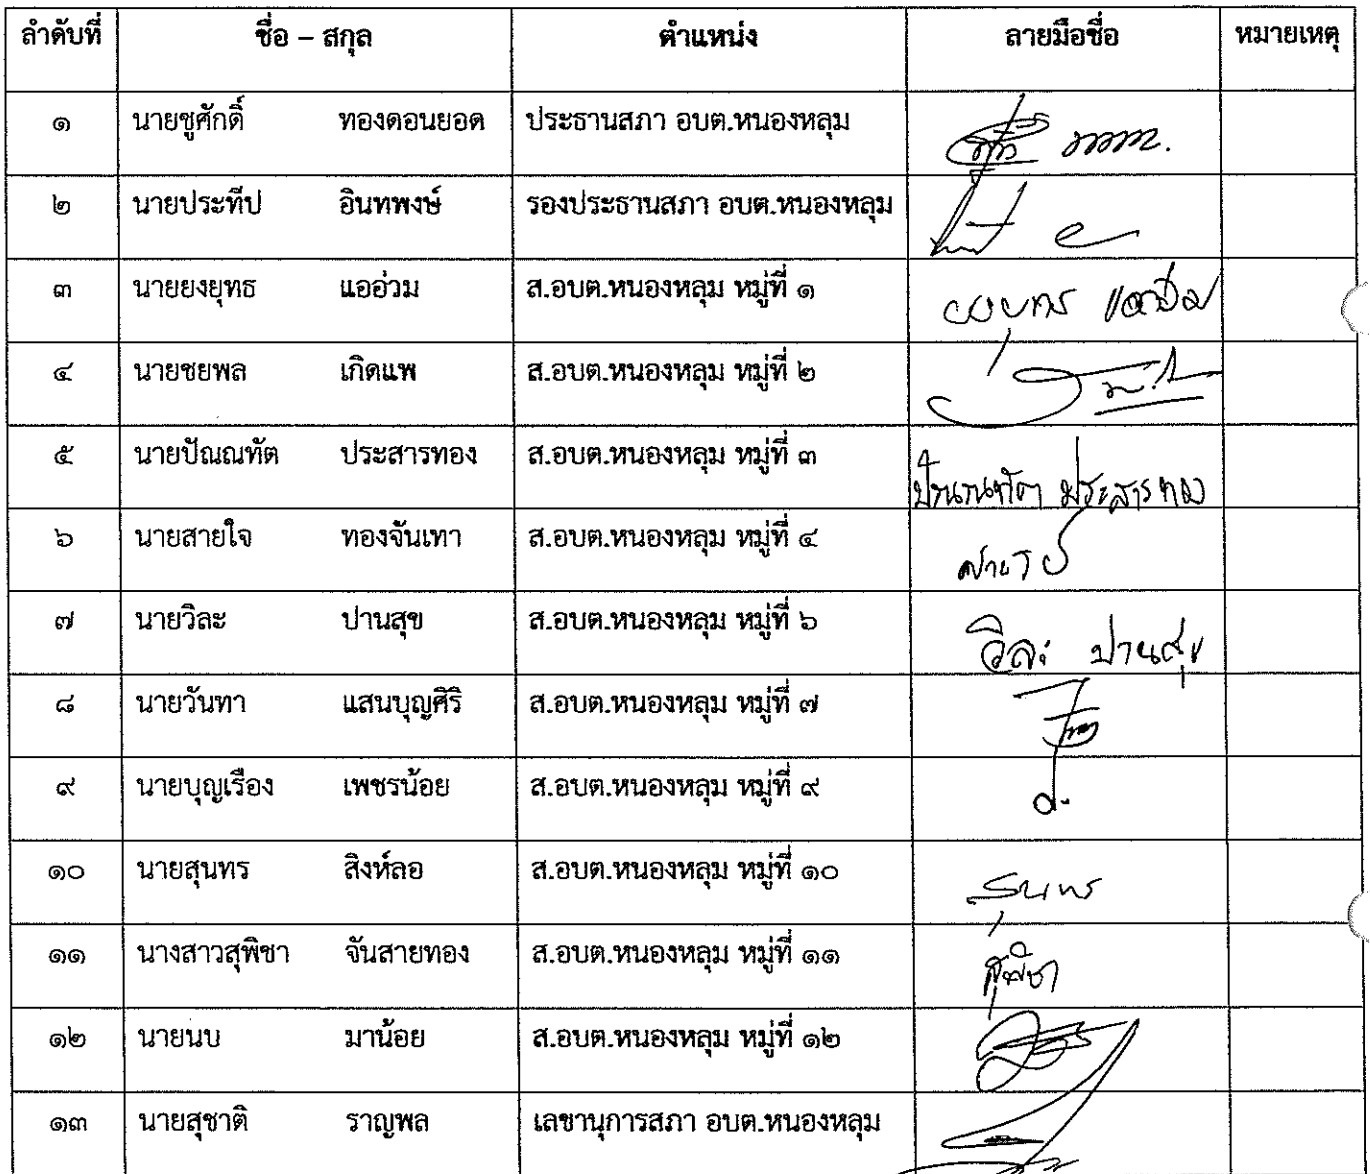 ลำดับที่ ชื่อ – สกุล ตำแหน่ง ลายมือชื่อ หมายเหตุ
๑ นายชูศักดิ์ ทองดอนยอด ประธานสภา อบต.หนองหลุม
๒ นายประทีป อินทพงษ์ รองประธานสภา อบต.หนองหลุม
๓ นายยงยุทธ แออ่วม ส.อบต.หนองหลุม หมู่ที่ ๑
๔ นายชยพล เกิดแพ ส.อบต.หนองหลุม หมู่ที่ ๒
๕ นายปัณณทัต ประสารทอง ส.อบต.หนองหลุม หมู่ที่ ๓ ปัณณทัต ประสารทอง
๖ นายสายใจ ทองจันเทา ส.อบต.หนองหลุม หมู่ที่ ๔ สายใจ
๗ นายวิละ ปานสุข ส.อบต.หนองหลุม หมู่ที่ ๖ วิละ ปานสุข
๘ นายวันทา แสนบุญศิริ ส.อบต.หนองหลุม หมู่ที่ ๗
๙ นายบุญเรือง เพชรน้อย ส.อบต.หนองหลุม หมู่ที่ ๙
๑๐ นายสุนทร สิงห์ลอ ส.อบต.หนองหลุม หมู่ที่ ๑๐ สุนทร
๑๑ นางสาวสุพิชา จันสายทอง ส.อบต.หนองหลุม หมู่ที่ ๑๑ สุพิชา
๑๒ นายนบ มาน้อย ส.อบต.หนองหลุม หมู่ที่ ๑๒
๑๓ นายสุชาติ ราญพล เลขานุการสภา อบต.หนองหลุม